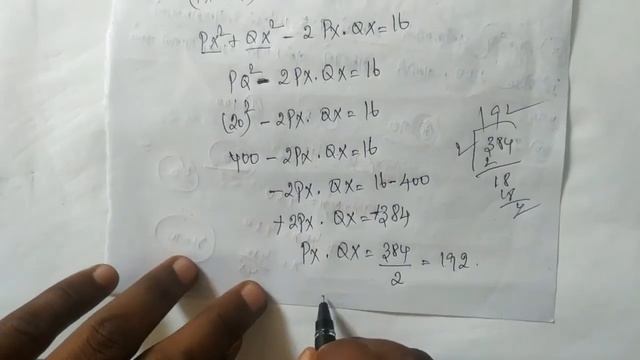 PX² + QX² - 2 PX · QX = 16
PQ² - 2PX · QX = 16
(20)² - 2PX · QX = 16
400 - 2PX · QX = 16
- 2PX · QX = 16 - 400
+ 2PX · QX = +384
PX · QX = 384/2 = 192.
192
2 384
2
18
18
4